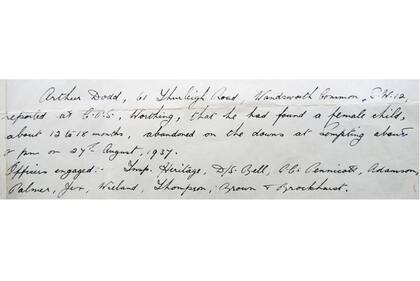 Arthur Dodd, 61 Thurleigh Road, Wandsworth Common, S.W.12
reported at C.O.S., Worthing, that he had found a female child,
about 12 to 18 months, abandoned on the downs at Sompting about
pm on 27th August, 1937.
Officers engaged:- Insp. Heritage, D/S. Bell, P.C. Pennicott, Adamson,
Palmer, Jex, Wieland, Thompson, Brown & Brockhurst.